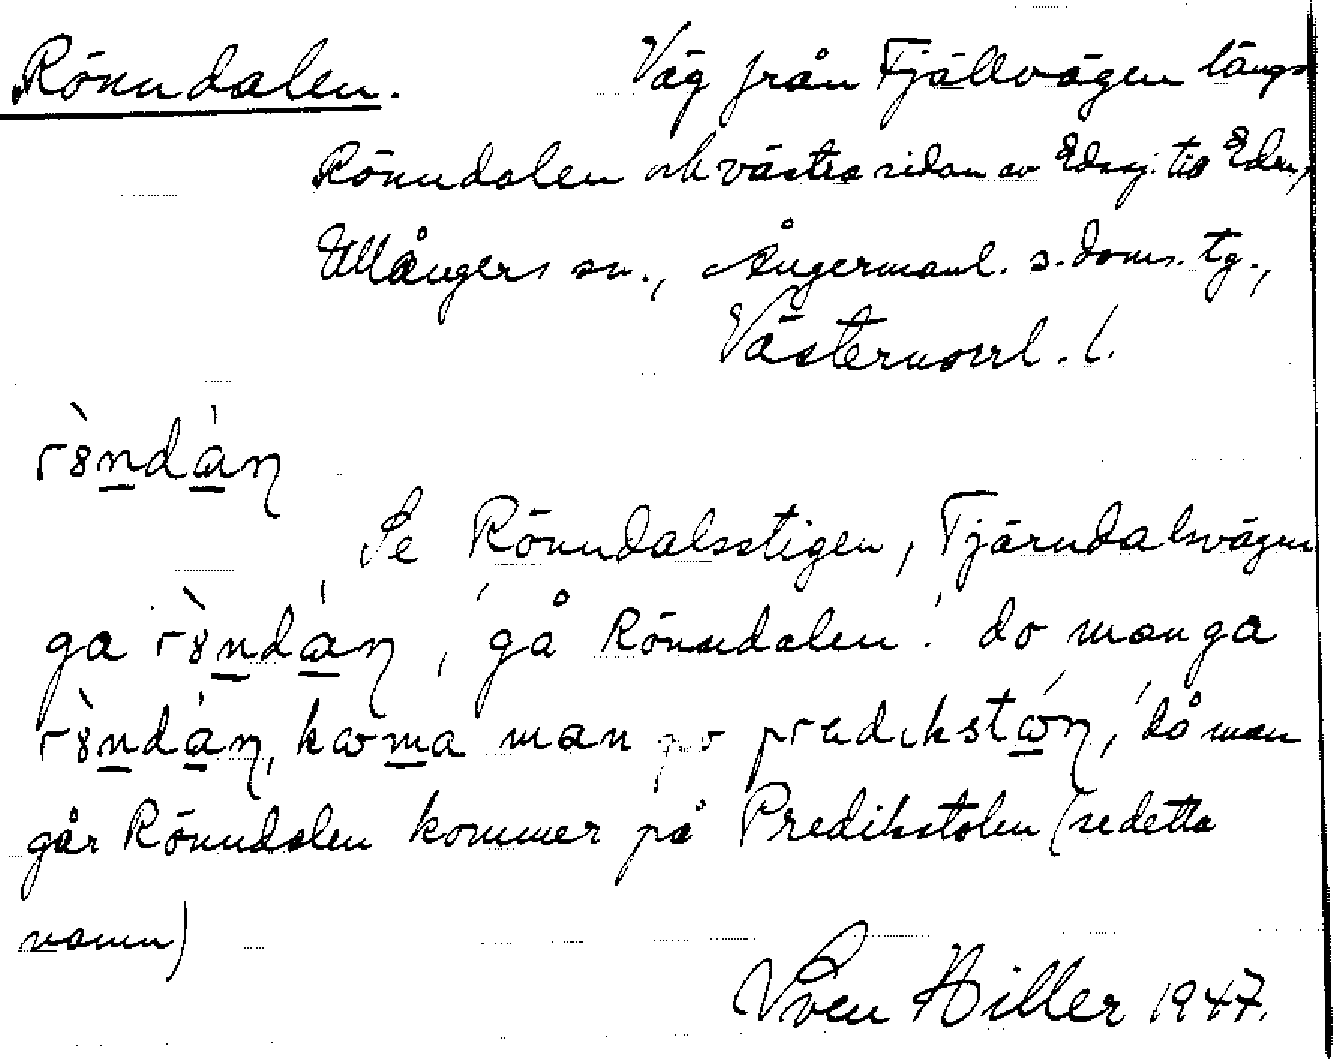 Rönndalen. Väg från Fjällvägen längs
Rönndalen och västra sidan av Edssj. till Eden,
Ullångers sn., Ångermanl. s. doms. tg.,
Västernorrl. l.
rȣ̀ndáɳ
Se Rönndalsstigen, Tjärndalsvägen
ga rȣ̀ndáɳ, 'gå Rönndalen'. do man ga
rȣ̀ndáɳ, kɷma man po predɩkstɷ́ɳ, 'då man
går Rönndalen kommer på Predikstolen (se detta
namn)
Sven Hiller 1947.